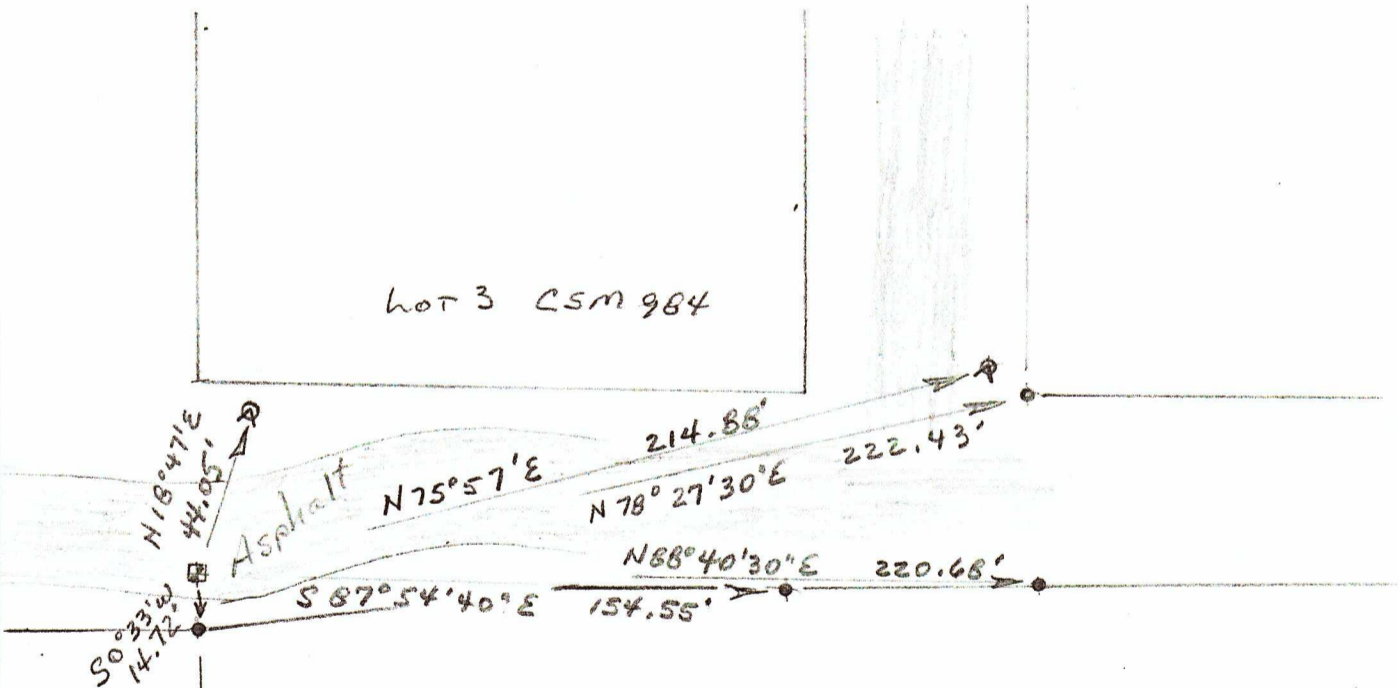 LOT 3 CSM 984
N18°47'E
44.05'
Asphalt
N75°57'E
214.88'
N78°27'30"E
222.43'
N88°40'30"E
220.68'
S87°54'40"E
154.55'
S0°33'W
14.72'